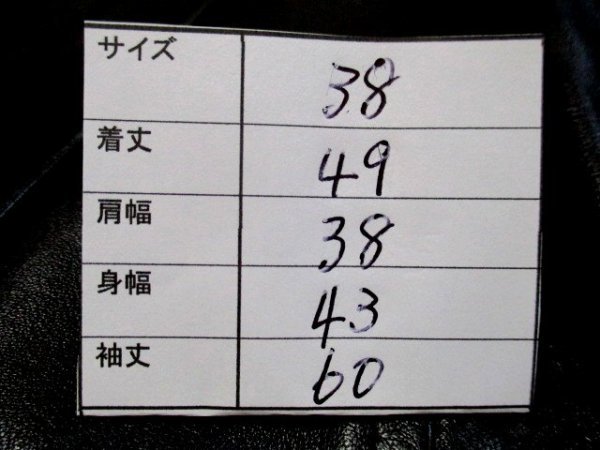 サイズ 38
着丈 49
肩幅 38
身幅 43
袖丈 60